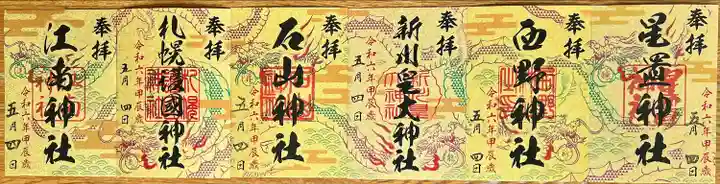 奉拝
星置神社
令和六年甲辰歳
五月四日
奉拝
西野神社
令和六年甲辰歳
五月四日
奉拝
新川皇大神社
令和六年甲辰歳
五月四日
奉拝
石山神社
令和六年甲辰歳
五月四日
奉拝
札幌護國神社
令和六年甲辰歳
五月四日
奉拝
江南神社
令和六年甲辰歳
五月四日